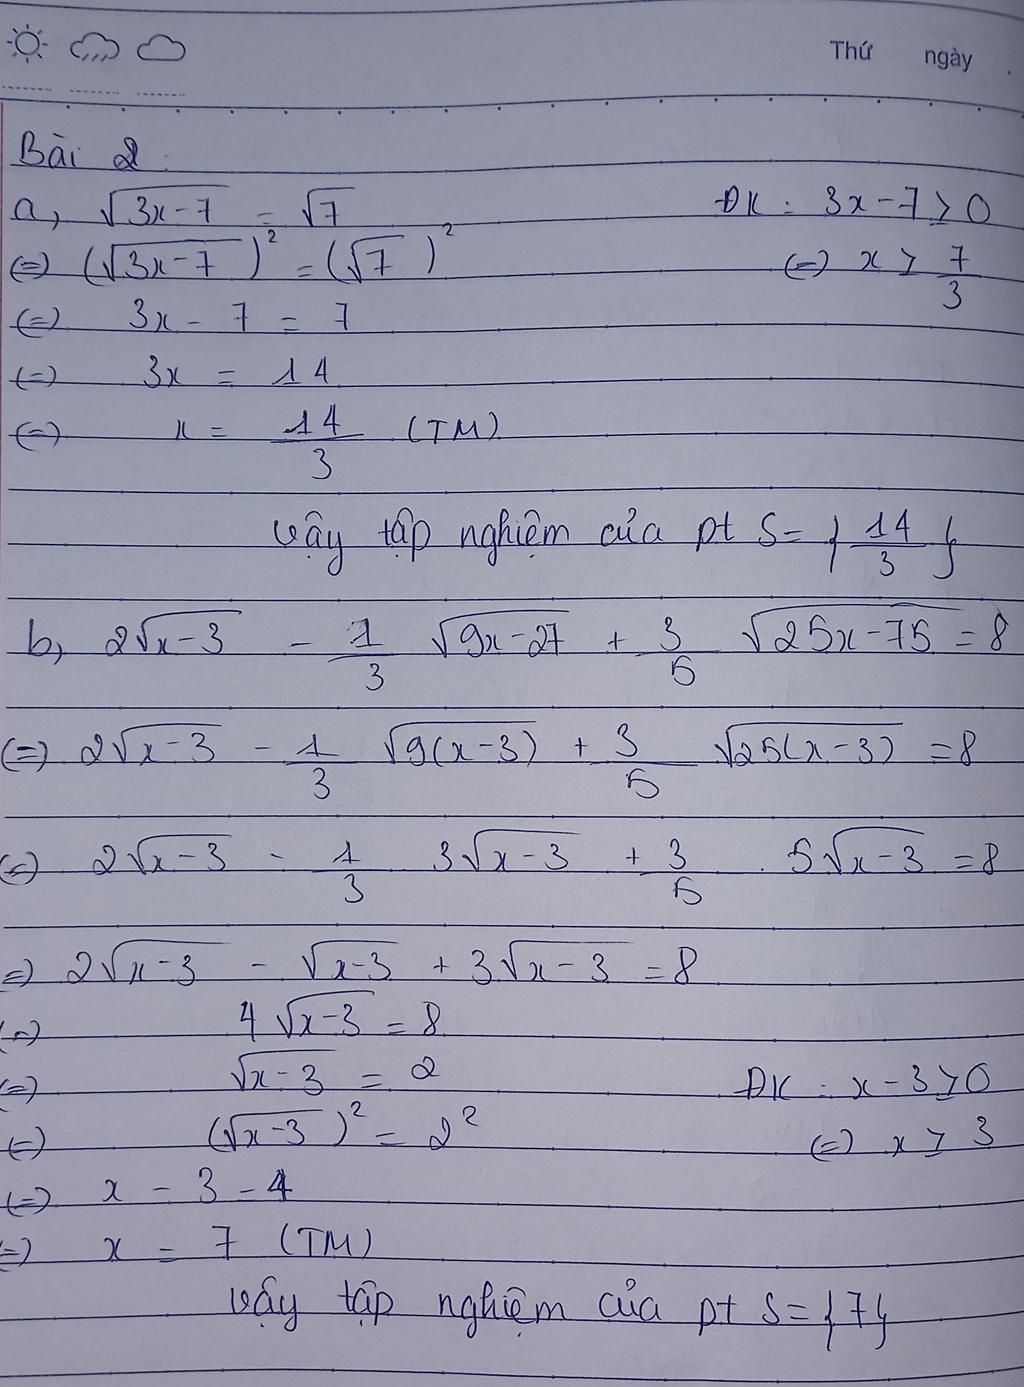 Thứ ngày
Bài 2
a, √(3x-7) = √7 ĐK: 3x-7 ≥ 0
(=) (√(3x-7))² = (√7)² (=) x ≥ 7/3
(=) 3x - 7 = 7
(=) 3x = 14
(=) x = 14/3 (TM)
Vậy tập nghiệm của pt S = {14/3}
b, 2√(x-3) - 1/3 √(9x-27) + 3/5 √(25x-75) = 8
(=) 2√(x-3) - 1/3 √(9(x-3)) + 3/5 √(25(x-3)) = 8
(=) 2√(x-3) - 1/3 3√(x-3) + 3/5 . 5√(x-3) = 8
=) 2√(x-3) - √(x-3) + 3√(x-3) = 8
(=) 4√(x-3) = 8
(=) √(x-3) = 2 ĐK: x-3 ≥ 0
(=) (√(x-3))² = 2² (=) x ≥ 3
(=) x - 3 = 4
=) x = 7 (TM)
Vậy tập nghiệm của pt S = {7}